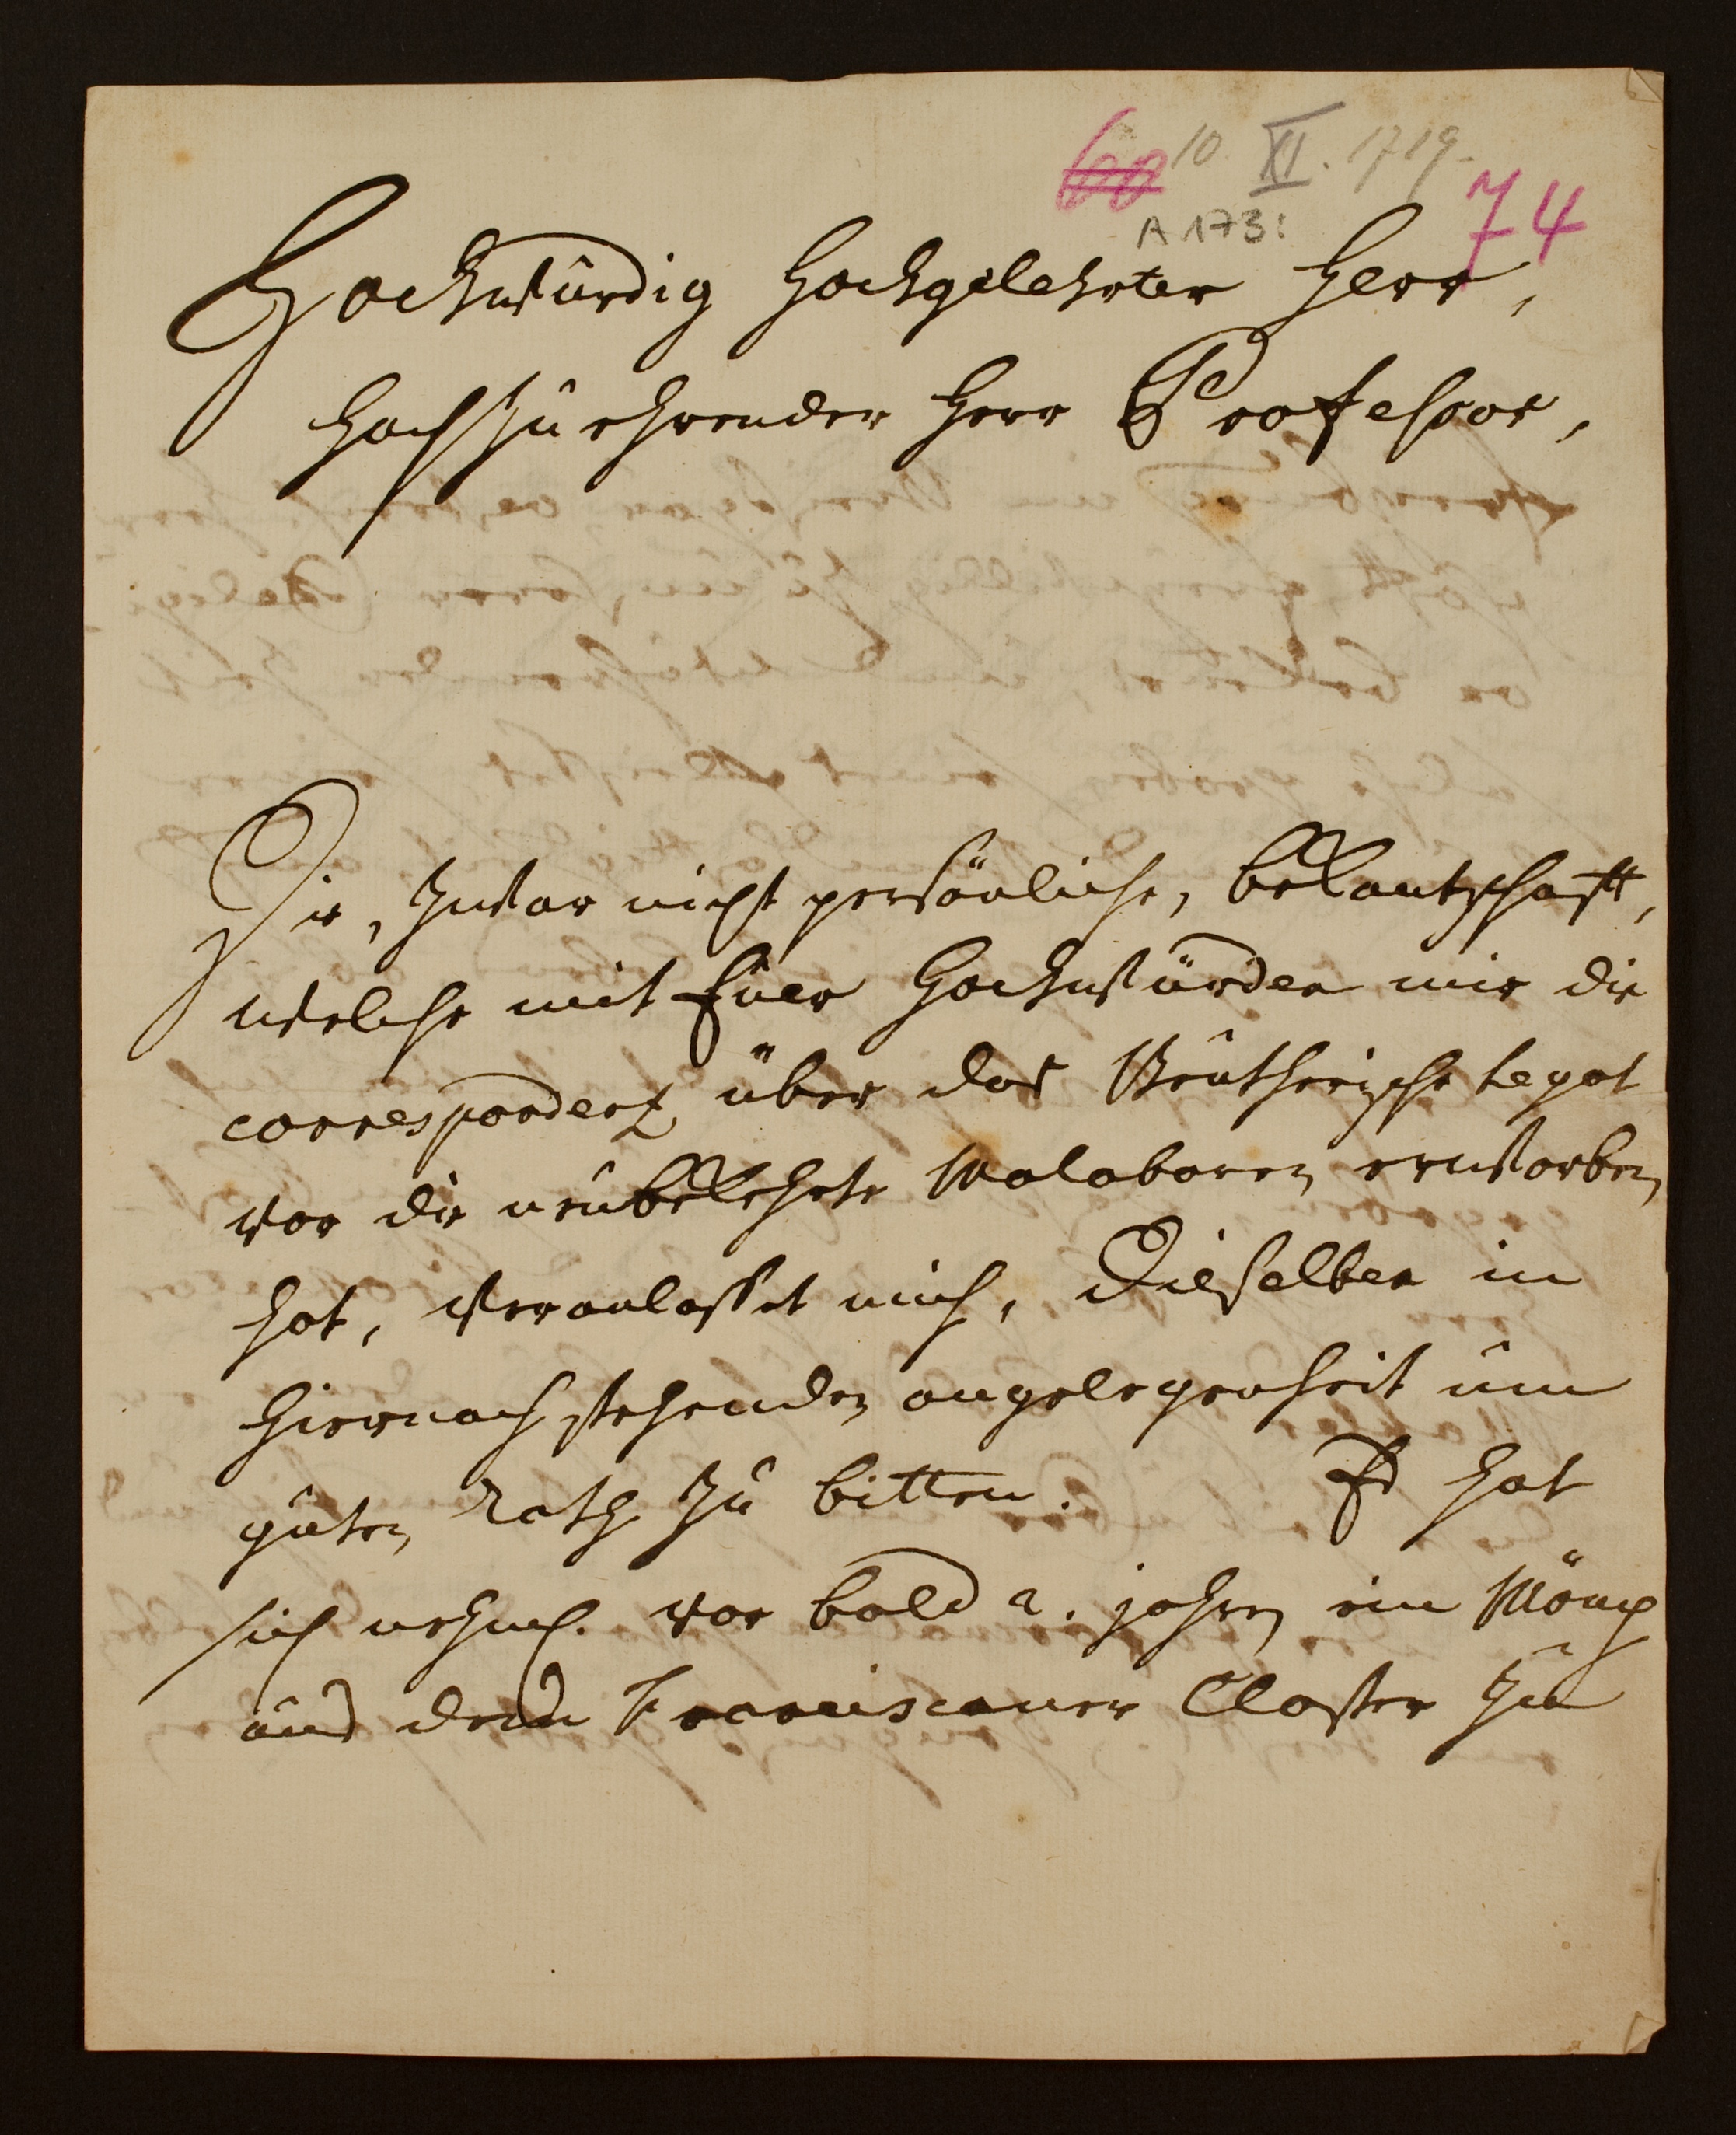 60 10 XII. 1719.
74
A 173:
Hochwürdig Hochgelehrter Herr,
Hochzuehrender Herr Professor,
Die, zwar nicht persönliche, bekantschafft,
welche mit Euer Hochwürden mir die
correspondentz über das Legat
vor die neubekehrte Malabaren erworben
hat, veranlaßet mich, Dieselben in
hiernach stehenden angelegenheit um
guten Rath zu bitten. Es hat
sich nehml. vor bald 2. jahren ein Mönch
aus dem Franciscaner Closter zu